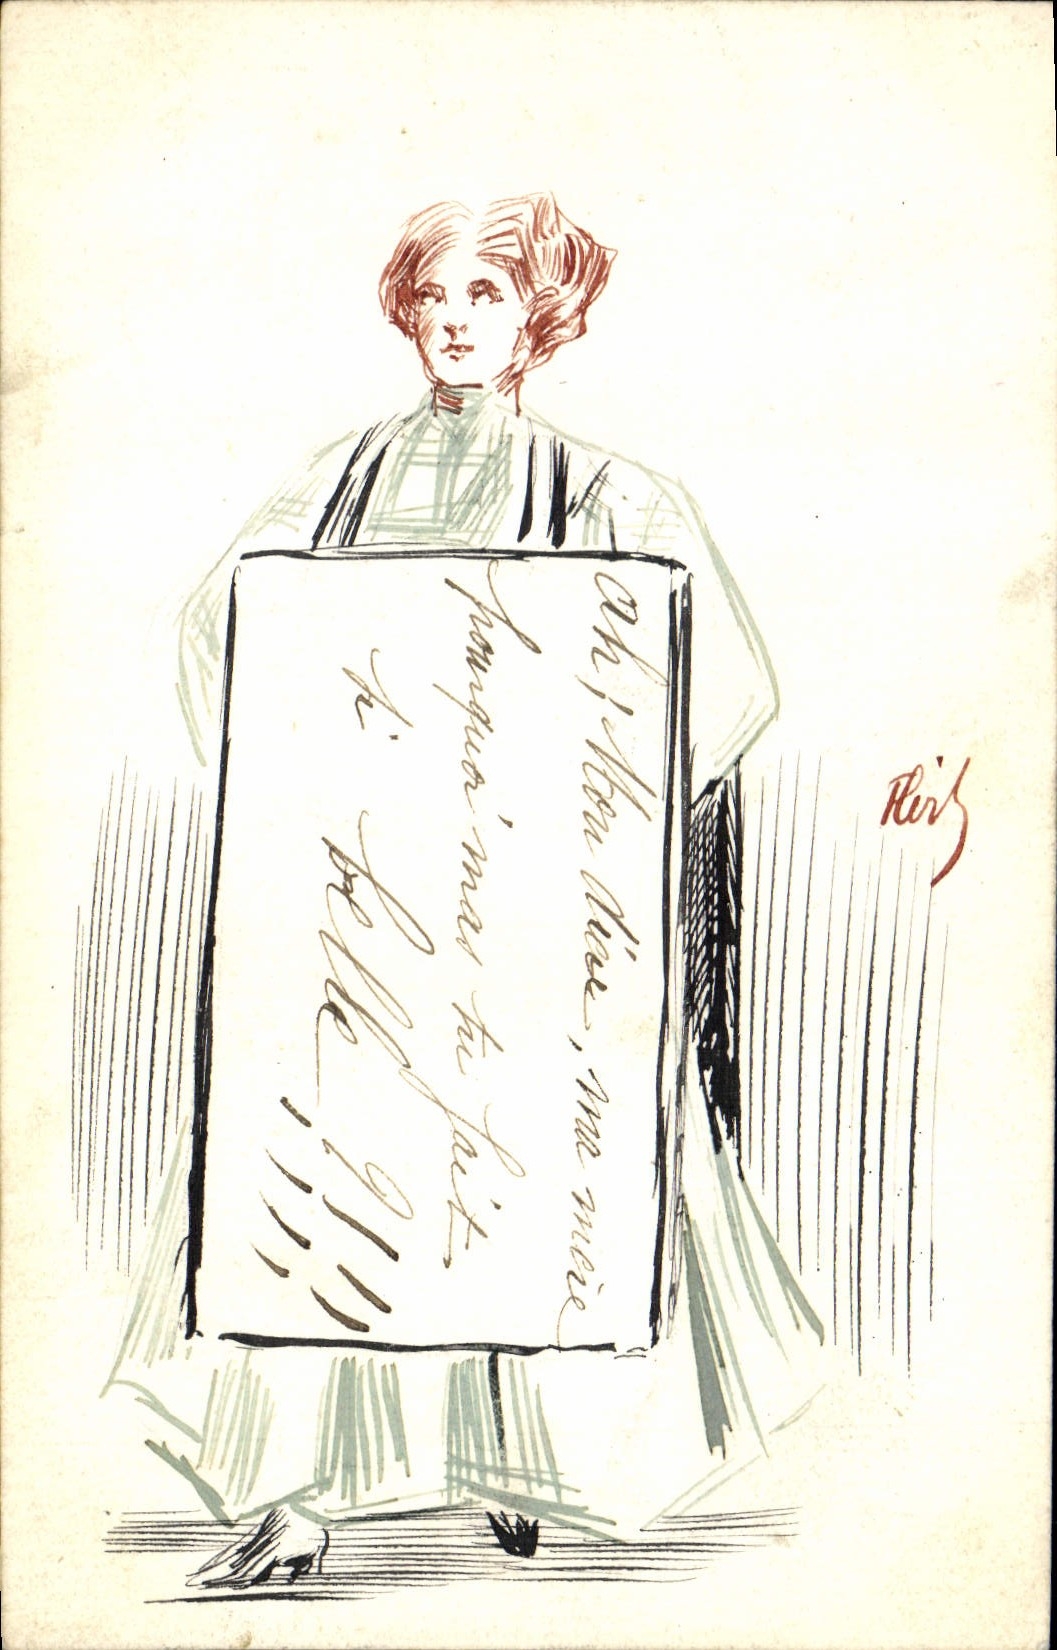 ah, Mon dieu, ma mère
pourquoi mas tu fait
si belle, ?!!!